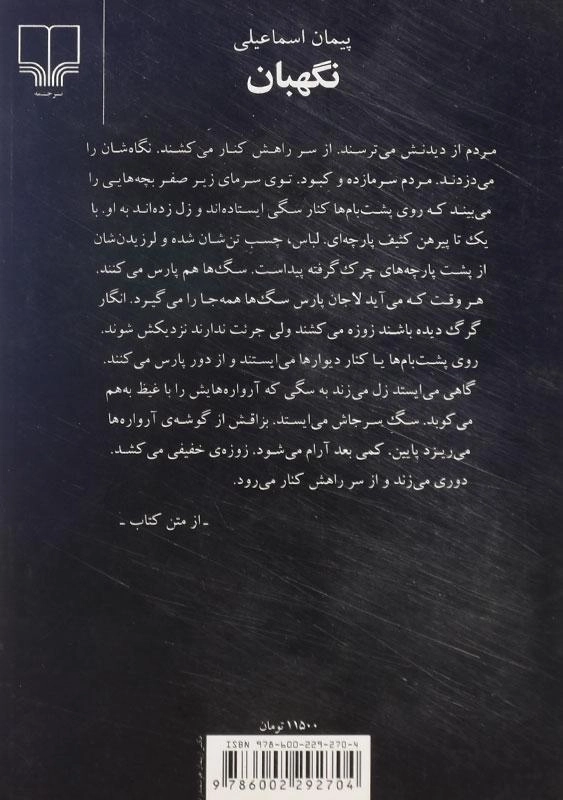 نشر چشمه
پیمان اسماعیلی
نگهبان
مردم از دیدنش می‌ترسند. از سر راهش کنار می‌کشند. نگاه‌شان را
می‌دزدند. مردم سرمازده و کبود. توی سرمای زیر صفر بچه‌هایی را
می‌بیند که روی پشت‌بام‌ها کنار سگی ایستاده‌اند و زل زده‌اند به او. با
یک تا پیرهن کثیف پارچه‌ای. لباس، چسب تن‌شان شده و لرزیدن‌شان
از پشت پارچه‌های چرک‌گرفته پیداست. سگ‌ها هم پارس می‌کنند.
هر وقت که می‌آید لاجان پارس سگ‌ها همه‌جا را می‌گیرد. انگار
گرگ دیده باشند زوزه می‌کشند ولی جرئت ندارند نزدیکش شوند.
روی پشت‌بام‌ها یا کنار دیوارها می‌ایستند و از دور پارس می‌کنند.
گاهی می‌ایستد زل می‌زند به سگی که آرواره‌هایش را با غیظ به‌هم
می‌کوبد. سگ سرجاش می‌ایستد. بزاقش از گوشه‌ی آرواره‌ها
می‌ریزد پایین. کمی بعد آرام می‌شود. زوزه‌ی خفیفی می‌کشد.
دوری می‌زند و از سر راهش کنار می‌رود.
ـ از متن کتاب ـ
۱۱۵۰۰ تومان
ISBN 978-600-229-270-4
9 786002 292704